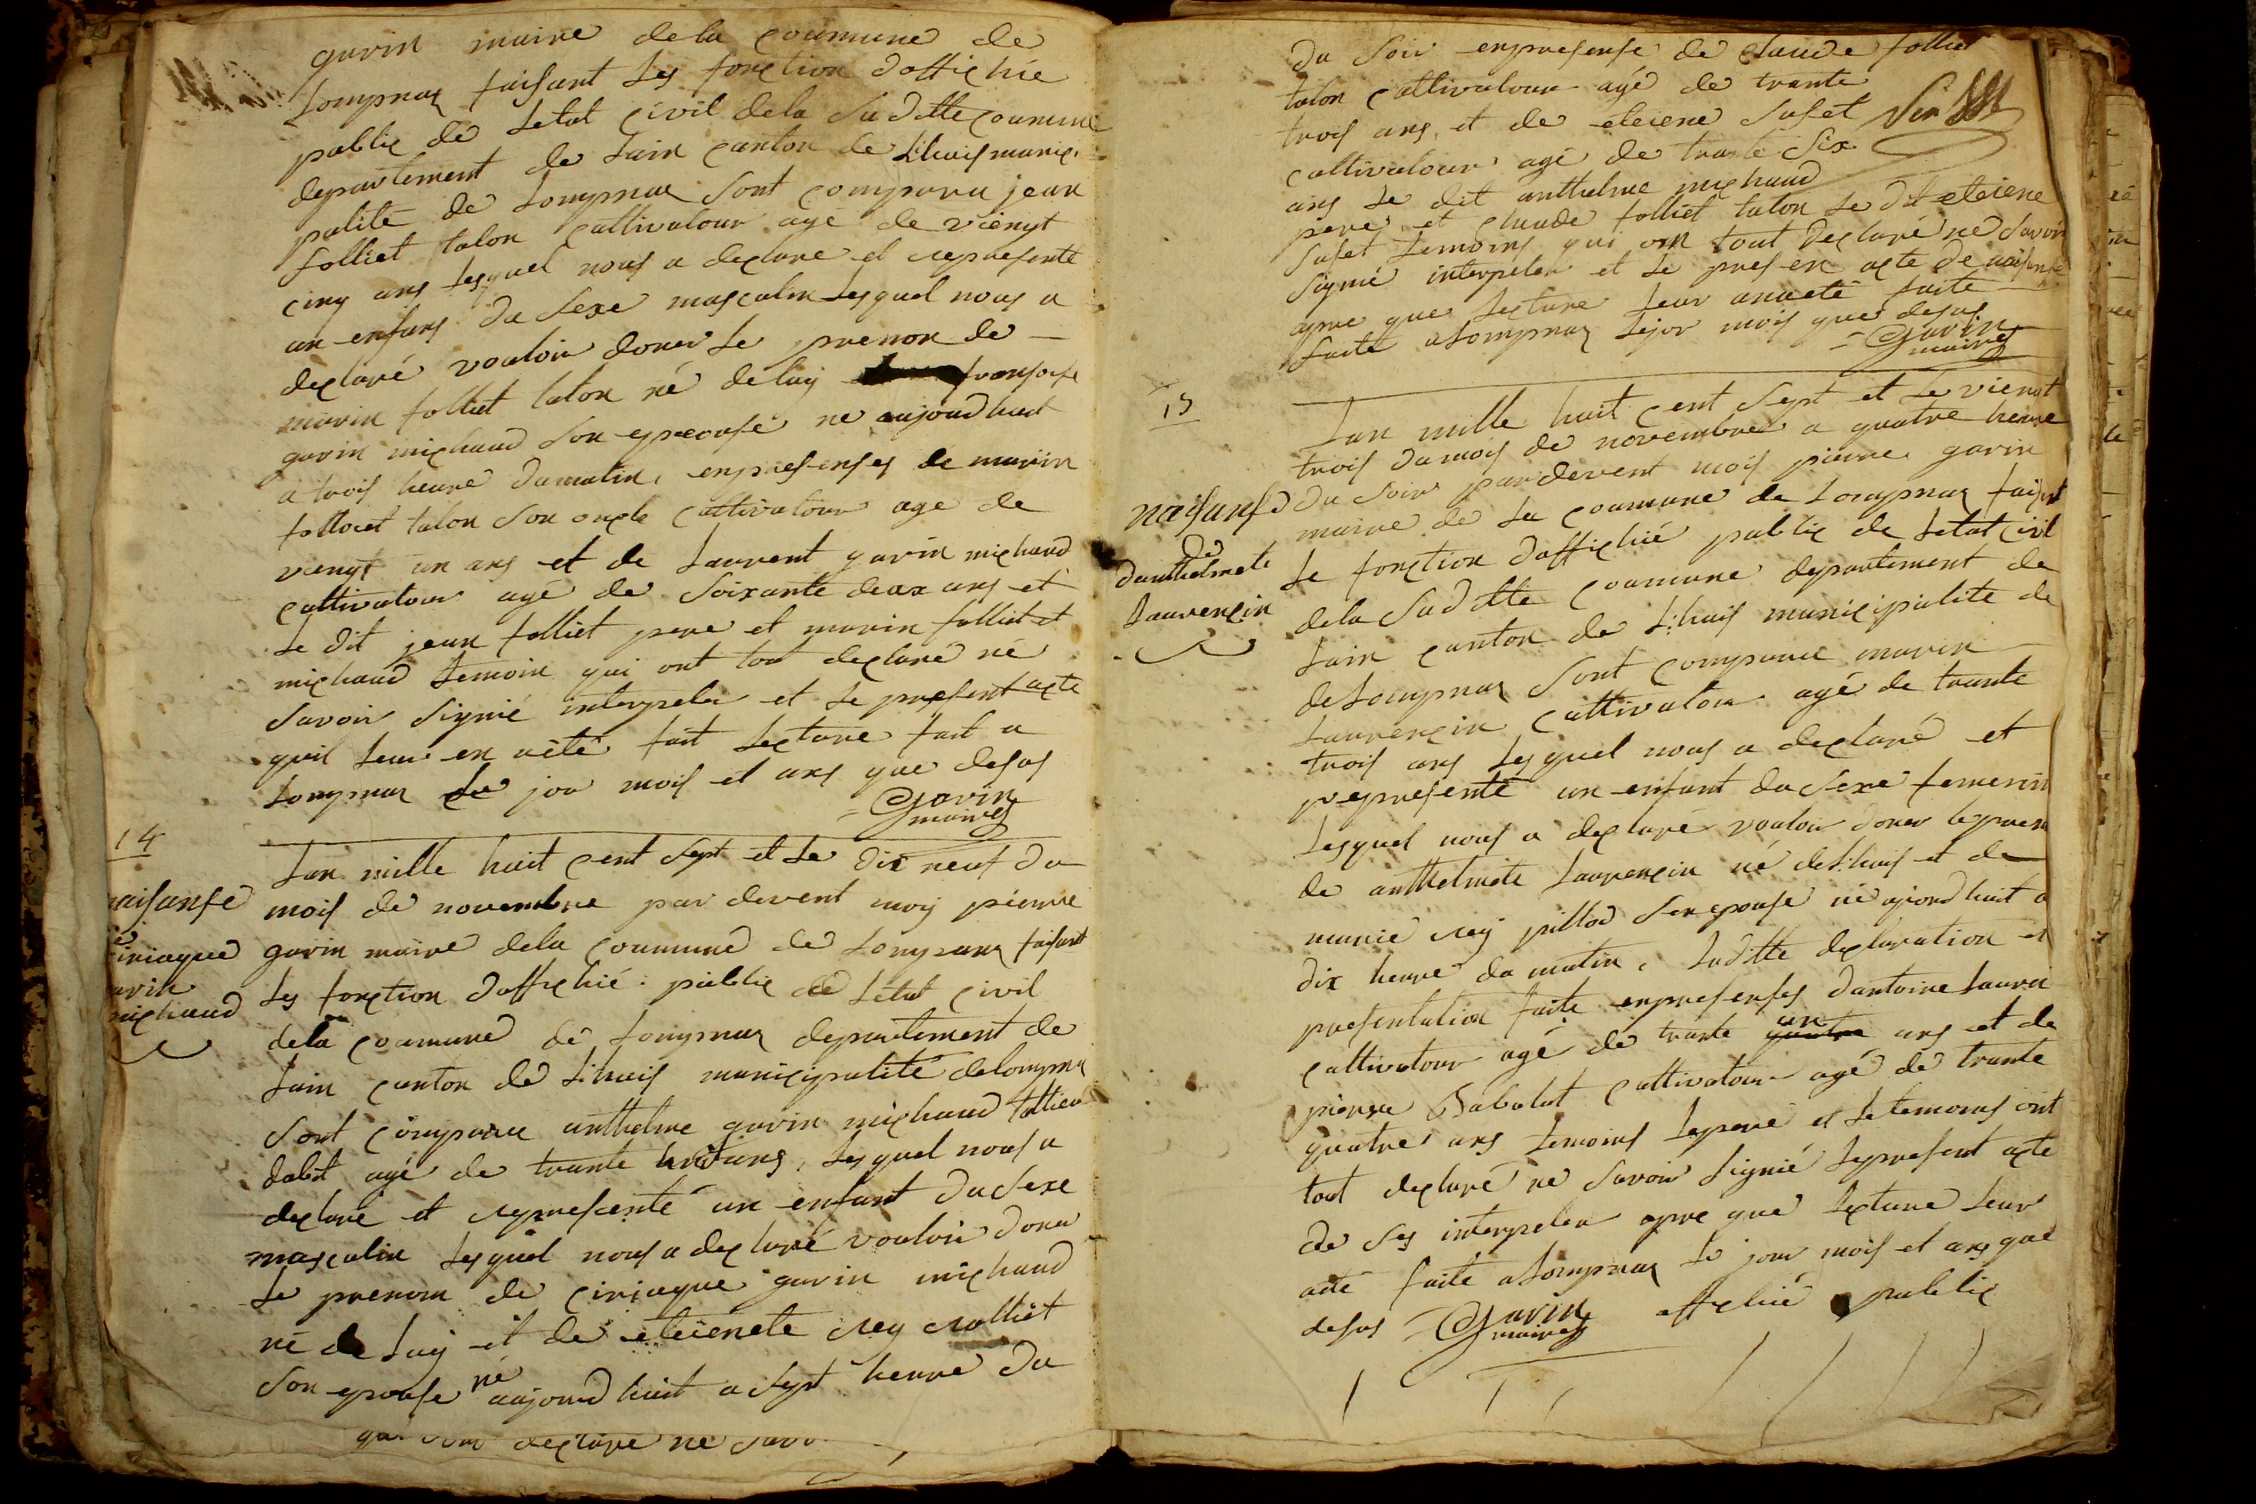 gavin maire dela Coumune de
Lompnaz faisant Les fonction doffichié
public de Letat Civil dela Suditte Coumune
departement de Lain Canton de Lhuis munici
palité de Lompnaz Sont Comparu jean
folliet talon Cultivatour agé de viengt
cinq ans Lesquel nous a declare et represente
un enfans du Sexe masculin Lesquel nous a
declaré vouloir doner Le prenon de
marin folliet talon né de luy fransoise
gavin michaud Son epeouse ne aujourdhuit
a trois heure dumatin, enpresenses de mariin
folloiet talon Son oncle Cultivatour age de
viengt un ans et de Laurent gavin michaud
Cultivatour agé de Soixante deux ans et
Le dit jean folliet pere et marin folliet et
michaud temoin qui ont tout declaré né
Savoir Signié interpeler et Le present acte
quil Leur en aété fait Lecture fait a
Lompnaz Le jou mois et ans que desus
Gavin
maire
14
Lan mille huit Cent Sept et Le dix neuf du
naisanse
mois de novembre par devent moy pierre
ciriaque
gavin maire dela Coumune de Lompnaz faisant
gavin
Les fonction doffichié public de Létat Civil
michaud
dela Coumune de Lompnaz departement de
Lain Canton de Lhuis municipalité delompnaz
Sont Comparu anthelme gavin michaud
agé de trante huit ans, Lesquel nous a
declaré et represcenté un enfant du Sexe
masculin Lesquel nous a declaré vouloir doner
Le prenom de Ciriaque gavin michaud
né de Luy et de eteienete rey rolliet
Son epouse né aujourdhuit a Sept heure du
declare ne Savoi
du Soir enpresense de Claude folliet
talon Cultivatour agé de trante
trois ans, et de eteiene Suset
Cultivatour agé de trante Six
ans Le dit anthelme michaud
pere et Claude folliet talon Le dit eteiene
Suset temoins qui on tout declaré ne Savoir
Signié interpeler et Le presen acte de naisanse
apre que Lecture Leur anaeté faite
faite aLompnaz Lejor mois que desus
Gavin
maire
15
Lan mille huit Cent Sept et Le viengt
trois dumois de novembre a quatre heure
naisanse
du Soir pardevent mois pierre gavin
de
maire de La Coumune de Lompnaz faisant
danthelmete
Le fonction doffichié public de Letat Civil
Laurencin
dela Suditte Coumune departement de
Lain Canton de Lhuis municipalite de
deLompnaz Sont Comparu marin
Laurencin Cultivatour agé de trante
trois ans Lesquel nous a declaré et
representé un enfant du Sexe femenin
Lesquel nous a declaré vouloir doner leprenon
de anthelmete Laurencin né deLhuis et de
marie rey pillod Son epouse né ajourdhuit a
dix heure du matin, Laditte declaration et
presentation faite enpresenses dantoine Lauren
Cultivatour agé de trante un ans et de
pierre Babolat Cultivatour agé de trante
quatre ans temoins Lepere et Letemoins ont
tout declaré ne Savoir Signié Lepresent acte
de Ses interpeler apre que Lecture Leur
aété faite aLompnaz Le jour mois et ans que
desus Gavin offichié public
maire